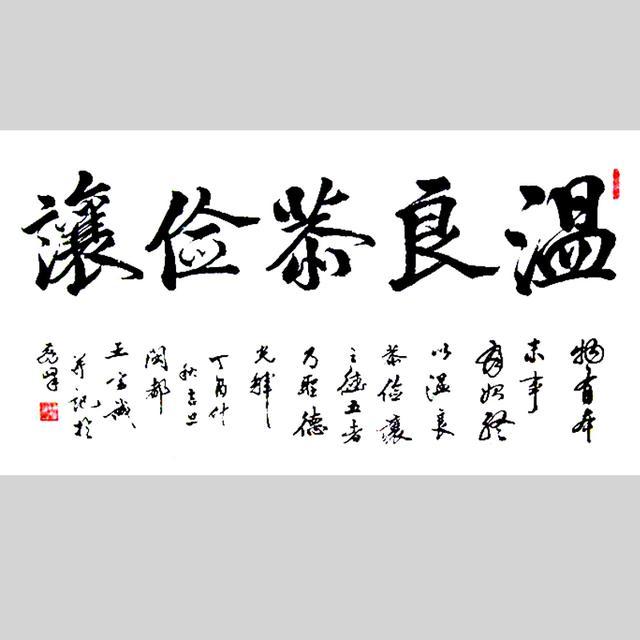 温良恭俭讓
物有本
末事
有始終
以温良
恭俭讓
之德五者
乃聖德
光輝
丁酉仲
秋吉旦
閩都
王
并記於